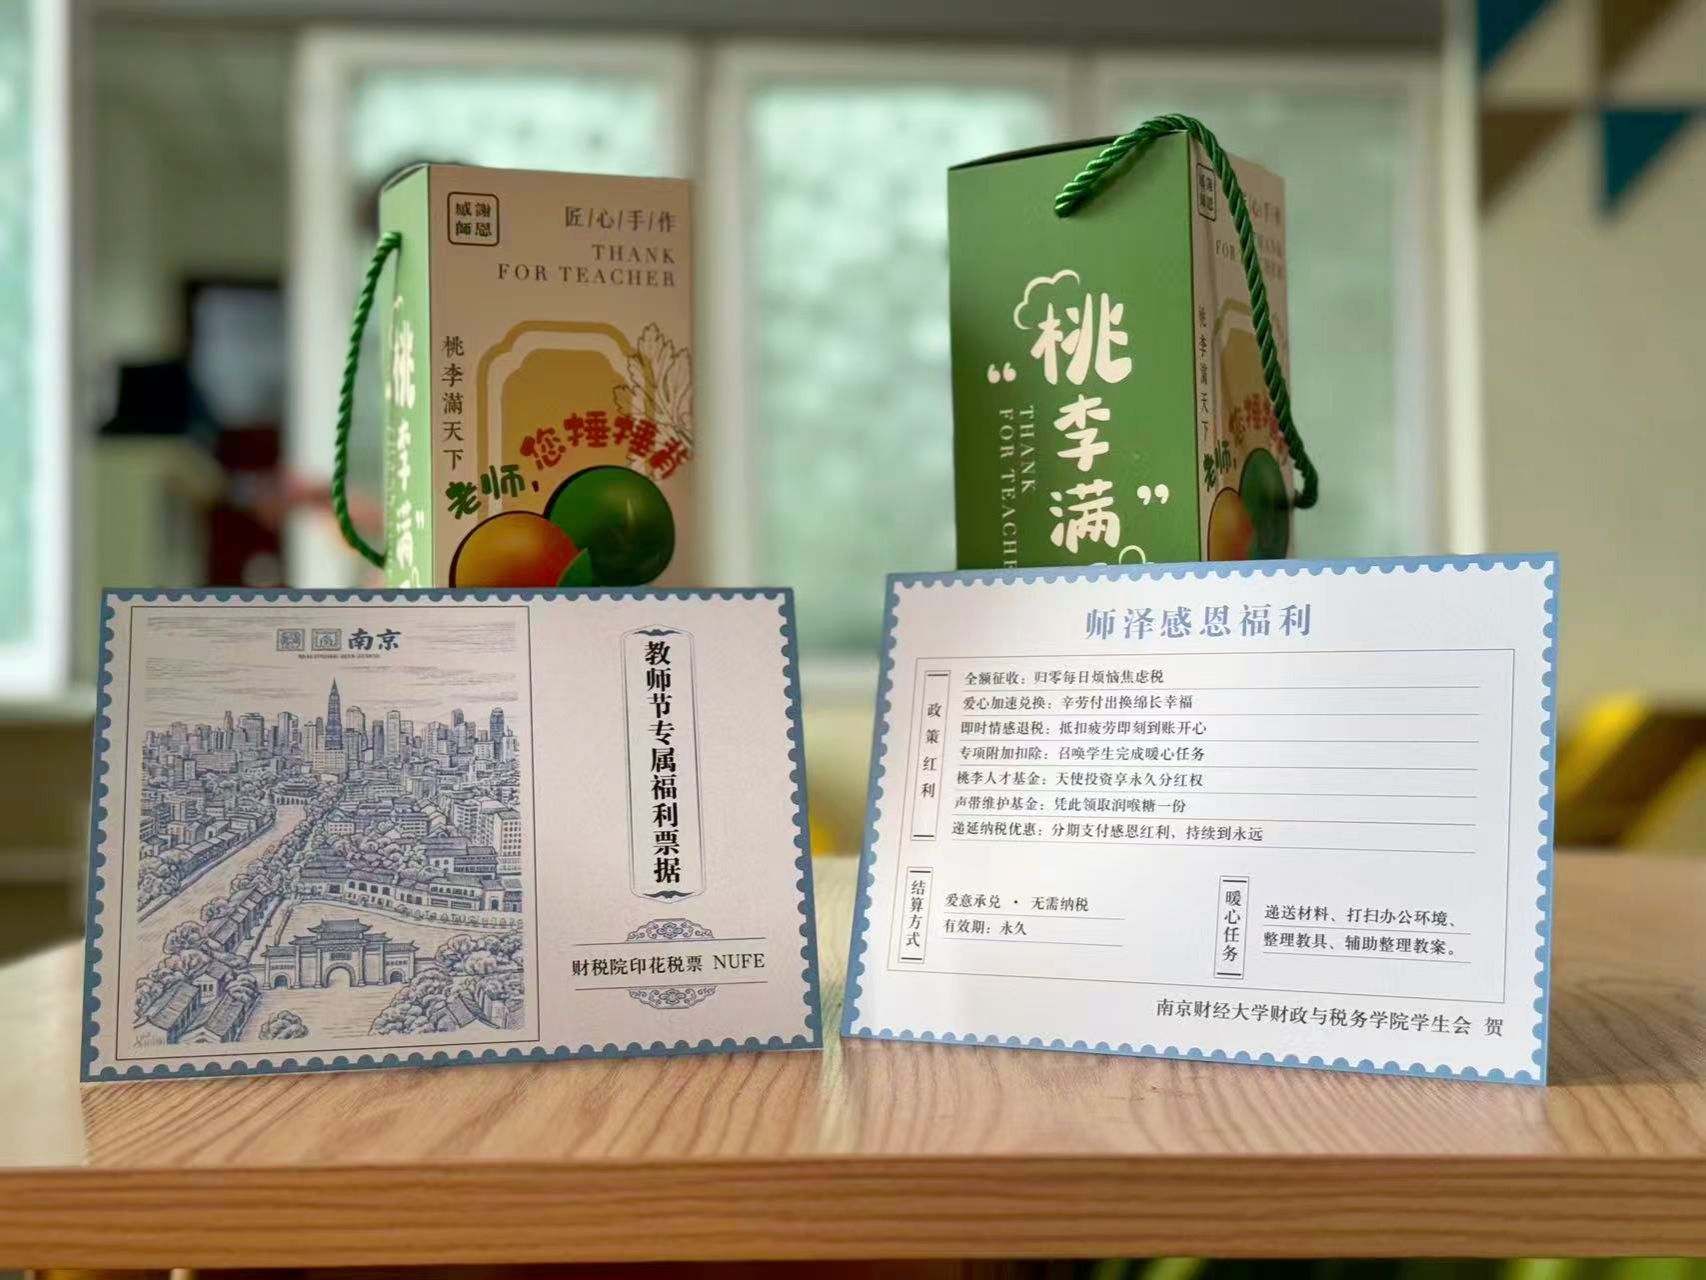 感謝
師恩
匠/心/手/作
THANK
FOR TEACHER
桃李滿天下
老师，您捶捶莓
桃李满
“桃李满”
THANK
FOR TEACHE
桃李滿天下
老师，您捶捶
南京
教师节专属福利票据
财税院印花税票 NUFE
师泽感恩福利
政策红利
全额征收：归零每日烦恼焦虑税
爱心加速兑换：辛劳付出换绵长幸福
即时情感退税：抵扣疲劳即刻到账开心
专项附加扣除：召唤学生完成暖心任务
桃李人才基金：天使投资享永久分红权
声带维护基金：凭此领取润喉糖一份
递延纳税优惠：分期支付感恩红利，持续到永远
结算方式
爱意承兑 · 无需纳税
有效期：永久
暖心任务
递送材料、打扫办公环境、
整理教具、辅助整理教案。
南京财经大学财政与税务学院学生会 贺